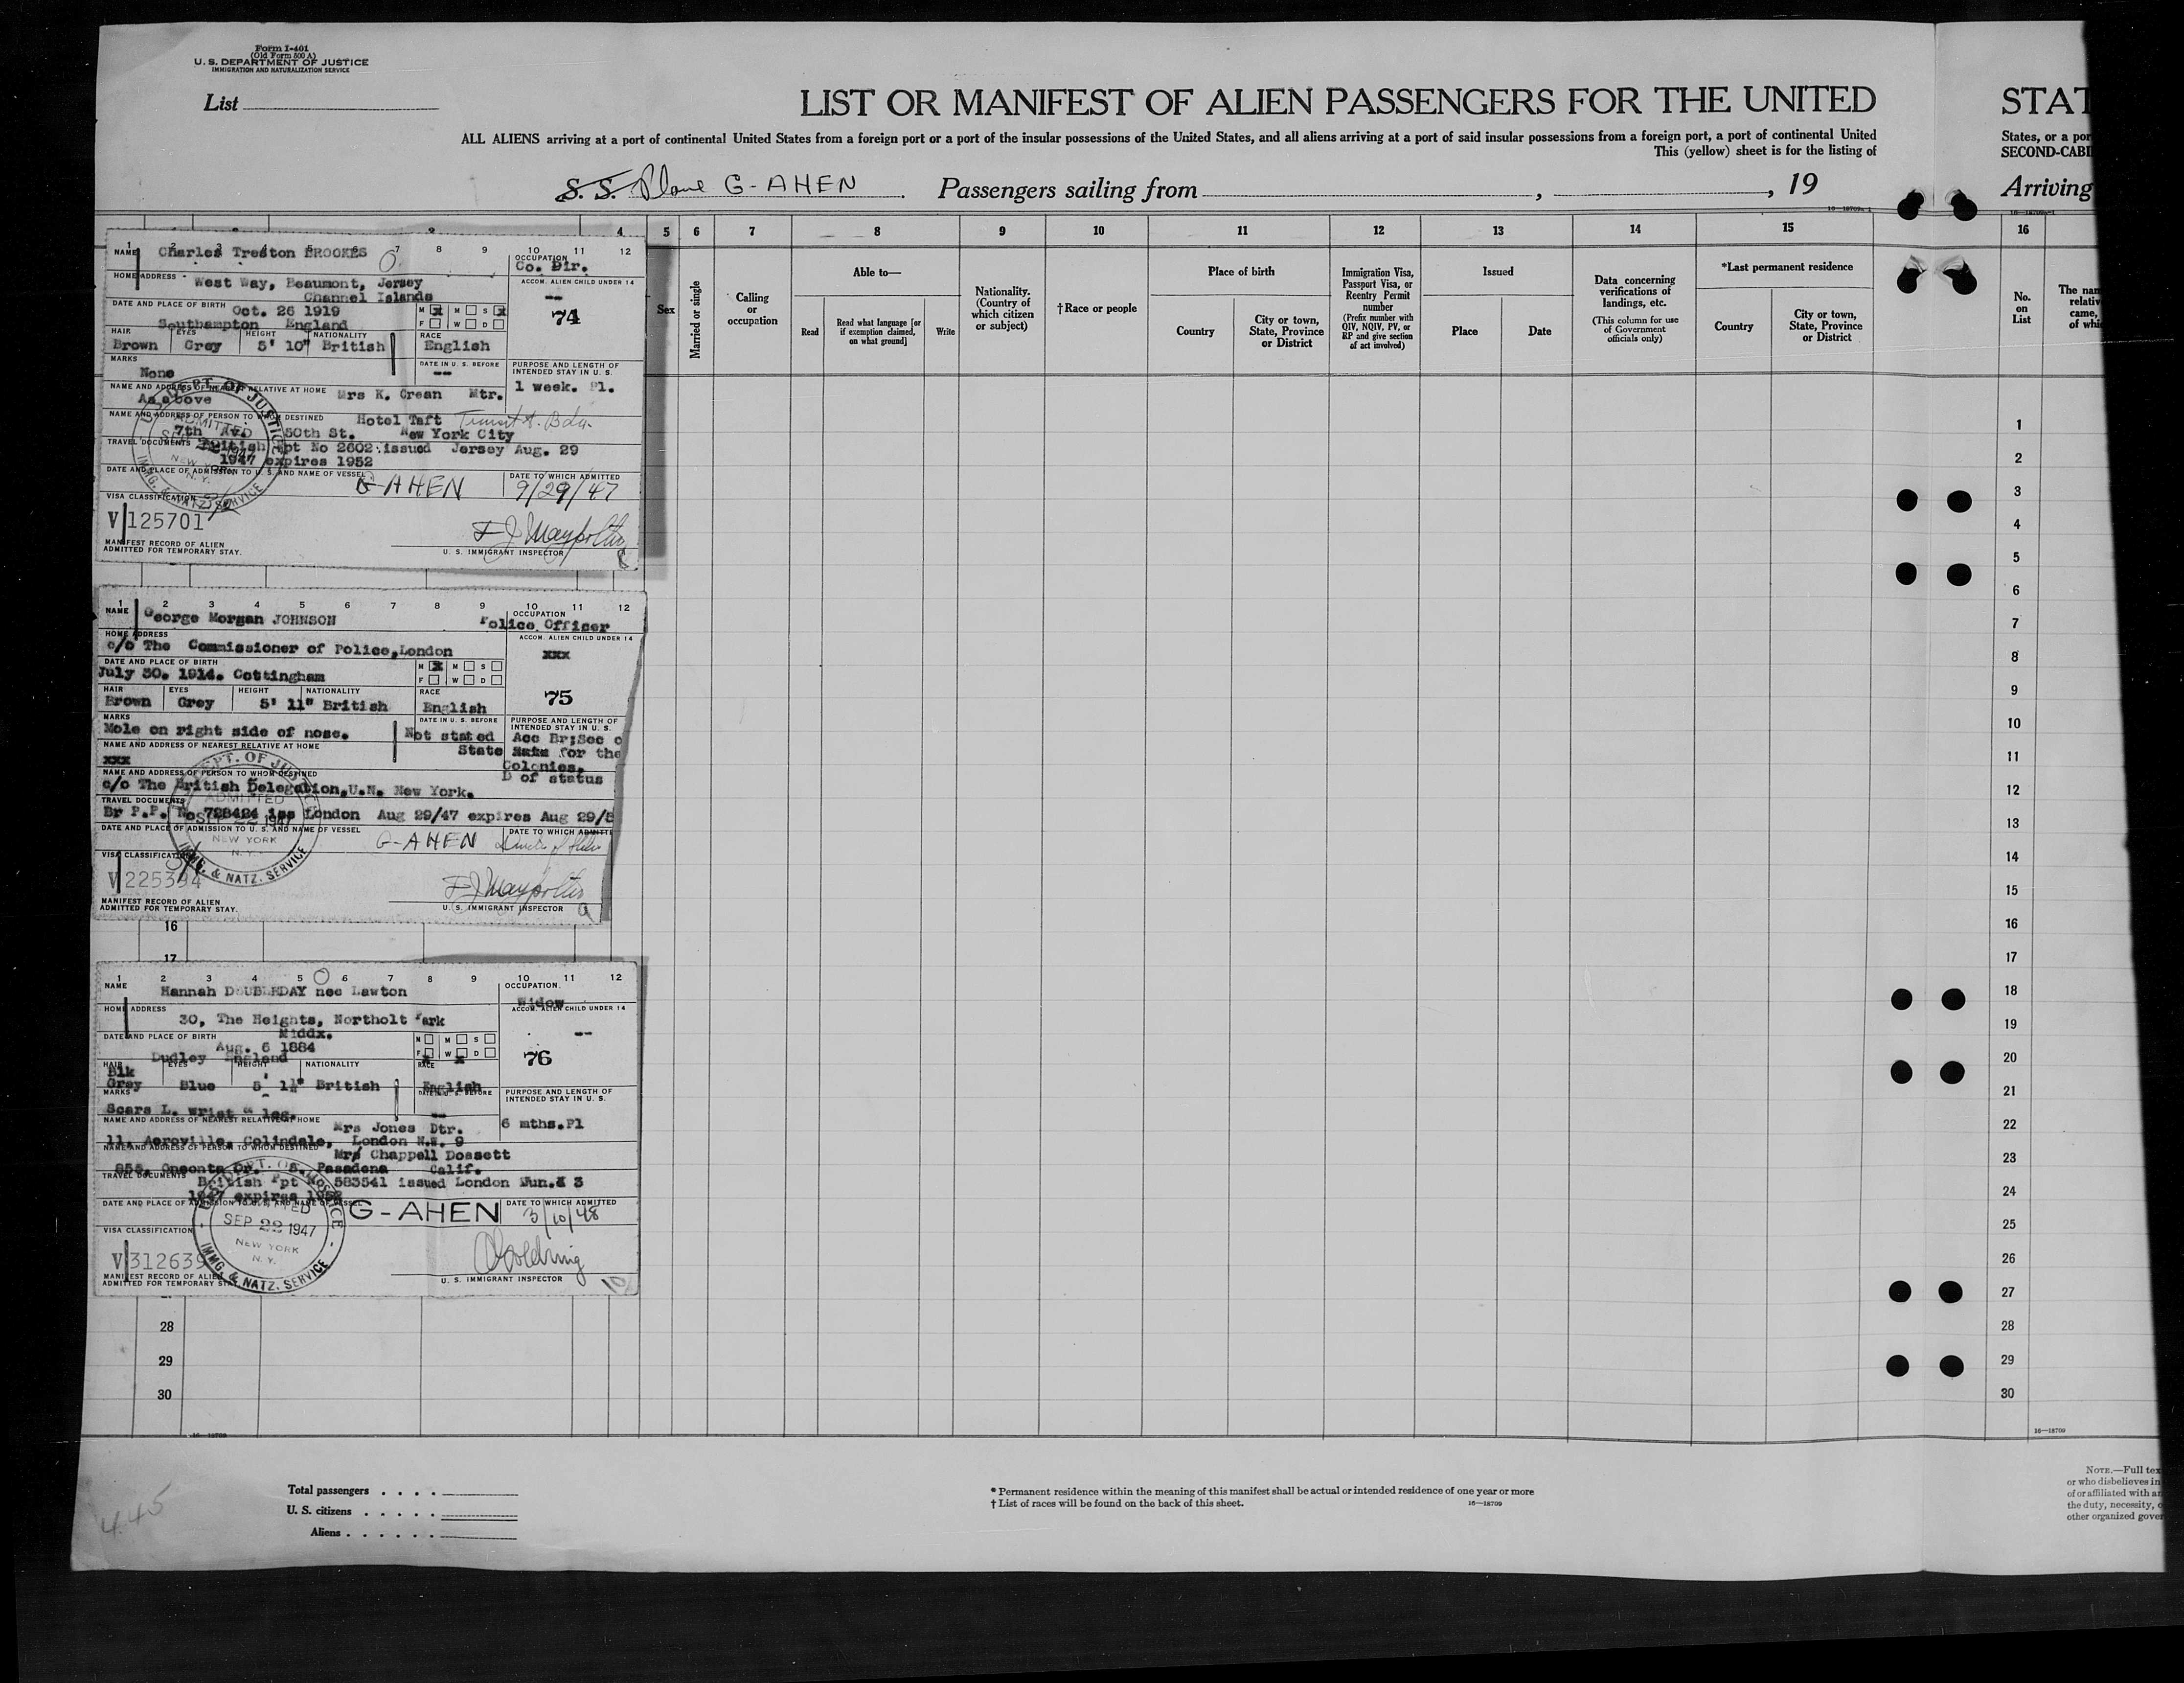 Form I-401
(Old Form 500 A)
U. S. DEPARTMENT OF JUSTICE
IMMIGRATION AND NATURALIZATION SERVICE
List
LIST OR MANIFEST OF ALIEN PASSENGERS FOR THE UNITED
STAT
ALL ALIENS arriving at a port of continental United States from a foreign port or a port of the insular possessions of the United States, and all aliens arriving at a port of said insular possessions from a foreign port, a port of continental United
States, or a por
This (yellow) sheet is for the listing of
SECOND-CABI
S. S. Plane G-AHEN Passengers sailing from , , 19
Arriving
16—18709
4 5 6 7 8 9 10 11 12 13 14 15 16
Sex
Married or single
Calling or occupation
Able to—
Read
Read what language [or if exemption claimed, on what ground]
Write
Nationality. (Country of which citizen or subject)
†Race or people
Place of birth
Country
City or town, State, Province or District
Immigration Visa, Passport Visa, or Reentry Permit number
(Prefix number with QIV, NQIV, PV, or RP and give section of act involved)
Issued
Place
Date
Data concerning verifications of landings, etc.
(This column for use of Government officials only)
*Last permanent residence
Country
City or town, State, Province or District
No. on List
The nam
relativ
came,
of whi
1 2 3 4 5 6 7 8 9 10 11 12
NAME Charles Treston BROOKES
OCCUPATION
Co. Dir.
HOME ADDRESS
West Way, Beaumont, Jersey
Channel Islands
ACCOM. ALIEN CHILD UNDER 14
--
DATE AND PLACE OF BIRTH
Oct. 26 1919
Southampton England
M X M S X
F W D
74
HAIR EYES HEIGHT NATIONALITY RACE
Brown Grey 5' 10" British English
MARKS
None
DATE IN U. S. BEFORE
--
PURPOSE AND LENGTH OF INTENDED STAY IN U. S.
1 week. Pl.
NAME AND ADDRESS OF NEAREST RELATIVE AT HOME
Mrs K. Crean Mtr.
As above
NAME AND ADDRESS OF PERSON TO WHOM DESTINED
Hotel Taft Transit to Bda.
7th Av. 50th St. New York City
TRAVEL DOCUMENTS
British Ppt No 2602 issued Jersey Aug. 29
1947 expires 1952
DATE AND PLACE OF ADMISSION TO U. S. AND NAME OF VESSEL
G-AHEN
DATE TO WHICH ADMITTED
9/29/47
DEPT. OF JUSTICE
ADMITTED
NEW YORK
N. Y.
IMMG. & NATZ. SERVICE
VISA CLASSIFICATION
V 125701
MANIFEST RECORD OF ALIEN
ADMITTED FOR TEMPORARY STAY.
U. S. IMMIGRANT INSPECTOR
1 2 3 4 5 6 7 8 9 10 11 12
NAME George Morgan JOHNSON
OCCUPATION
Police Officer
HOME ADDRESS
c/o The Commissioner of Police, London
ACCOM. ALIEN CHILD UNDER 14
xxx
DATE AND PLACE OF BIRTH
July 30. 1914. Cottingham
M X M S
F W D
75
HAIR EYES HEIGHT NATIONALITY RACE
Brown Grey 5' 11" British English
MARKS
Mole on right side of nose.
DATE IN U. S. BEFORE
Not stated
PURPOSE AND LENGTH OF INTENDED STAY IN U. S.
Acc Br;Sec o
State for the
Colonies.
D of status
NAME AND ADDRESS OF NEAREST RELATIVE AT HOME
xxx
NAME AND ADDRESS OF PERSON TO WHOM DESTINED
c/o The British Delegation, U.N. New York.
TRAVEL DOCUMENTS
Br P.P. No 728424 iss London Aug 29/47 expires Aug 29/5
DATE AND PLACE OF ADMISSION TO U. S. AND NAME OF VESSEL
G-AHEN
DATE TO WHICH ADMITTED
DEPT. OF JUSTICE
ADMITTED
SEP 22 1947
NEW YORK
N. Y.
IMMG. & NATZ. SERVICE
VISA CLASSIFICATION
V 225394
MANIFEST RECORD OF ALIEN
ADMITTED FOR TEMPORARY STAY.
U. S. IMMIGRANT INSPECTOR
9
16
17
1 2 3 4 5 6 7 8 9 10 11 12
NAME
Hannah DOUBLEDAY nee Lawton
OCCUPATION.
Widow
HOME ADDRESS
30, The Heights, Northolt Park
Middx.
ACCOM. ALIEN CHILD UNDER 14
--
DATE AND PLACE OF BIRTH
Aug. 6 1884
Dudley England
M M S
F X W X D
76
HAIR EYES HEIGHT NATIONALITY RACE
Blk
Grey Blue 5' 1½" British English
MARKS
Scars L. wrist & leg.
DATE IN U. S. BEFORE
--
PURPOSE AND LENGTH OF INTENDED STAY IN U. S.
6 mths.Pl
NAME AND ADDRESS OF NEAREST RELATIVE AT HOME
Mrs Jones Dtr.
11, Aeroville, Colindale, London N.W. 9
NAME AND ADDRESS OF PERSON TO WHOM DESTINED
Mrs Chappell Dossett
855, Oneonta Dr. S. Pasadena Calif.
TRAVEL DOCUMENTS
British Ppt No 583541 issued London Jun. 3
1947 expires 1952
DATE AND PLACE OF ADMISSION TO U. S. AND NAME OF VESSEL
G-AHEN
DATE TO WHICH ADMITTED
3/10/48
DEPT. OF JUSTICE
ADMITTED
SEP 22 1947
NEW YORK
N. Y.
IMMG. & NATZ. SERVICE
VISA CLASSIFICATION
V 312639
MANIFEST RECORD OF ALIEN
ADMITTED FOR TEMPORARY STAY.
U. S. IMMIGRANT INSPECTOR
10
28
29
30
1
2
3
4
5
6
7
8
9
10
11
12
13
14
15
16
17
18
19
20
21
22
23
24
25
26
27
28
29
30
16—18709
16—18709
445
Total passengers
U. S. citizens
Aliens
* Permanent residence within the meaning of this manifest shall be actual or intended residence of one year or more
† List of races will be found on the back of this sheet.
16—18709
NOTE.—Full tex
or who disbelieves in
of or affiliated with an
the duty, necessity, o
other organized gover